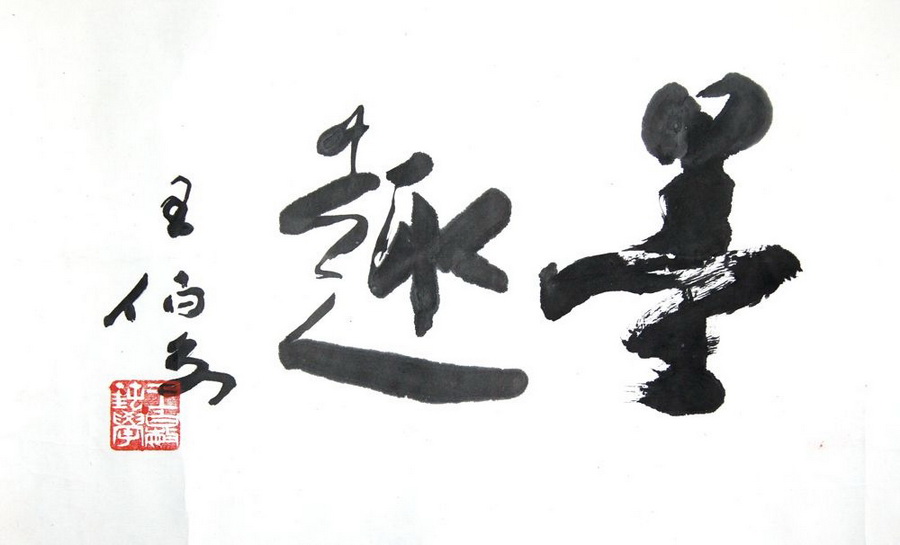 墨趣
王伯敏